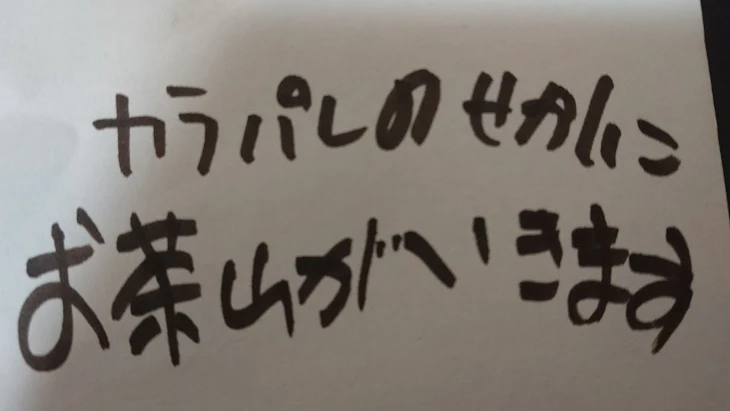 カラパレのせかいに
お茶山がいきます